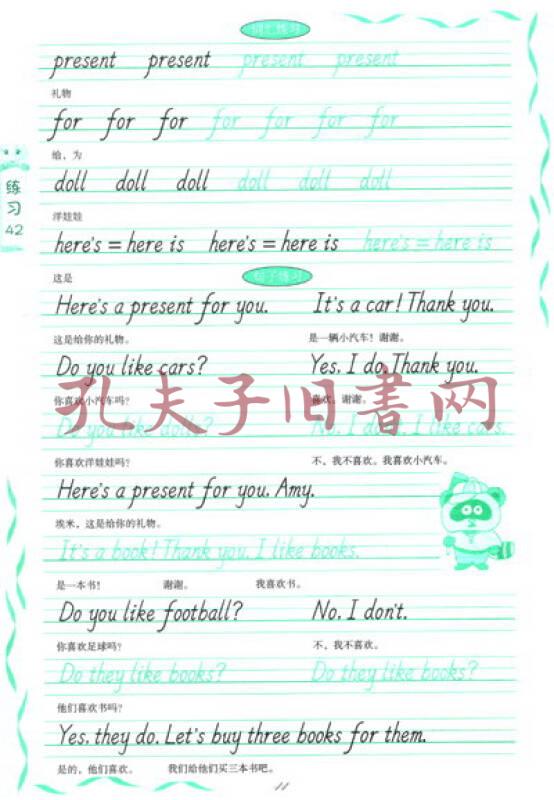 词汇练习
present present present present
礼物
for for for for for for for
给、为
doll doll doll doll doll doll
洋娃娃
练习
42
here's = here is here's = here is here's = here is
这是
句子练习
Here's a present for you. It's a car! Thank you.
这是给你的礼物。 是一辆小汽车!谢谢。
Do you like cars? Yes. I do. Thank you.
孔夫子旧书网
你喜欢小汽车吗? 喜欢,谢谢。
Do you like dolls? No. I don't. I like cars.
你喜欢洋娃娃吗? 不,我不喜欢。我喜欢小汽车。
Here's a present for you. Amy.
埃米,这是给你的礼物。
It's a book! Thank you. I like books.
是一本书! 谢谢。 我喜欢书。
Do you like football? No. I don't.
你喜欢足球吗? 不,我不喜欢。
Do they like books? Do they like books?
他们喜欢书吗?
Yes. they do. Let's buy three books for them.
是的,他们喜欢。 我们给他们买三本书吧。